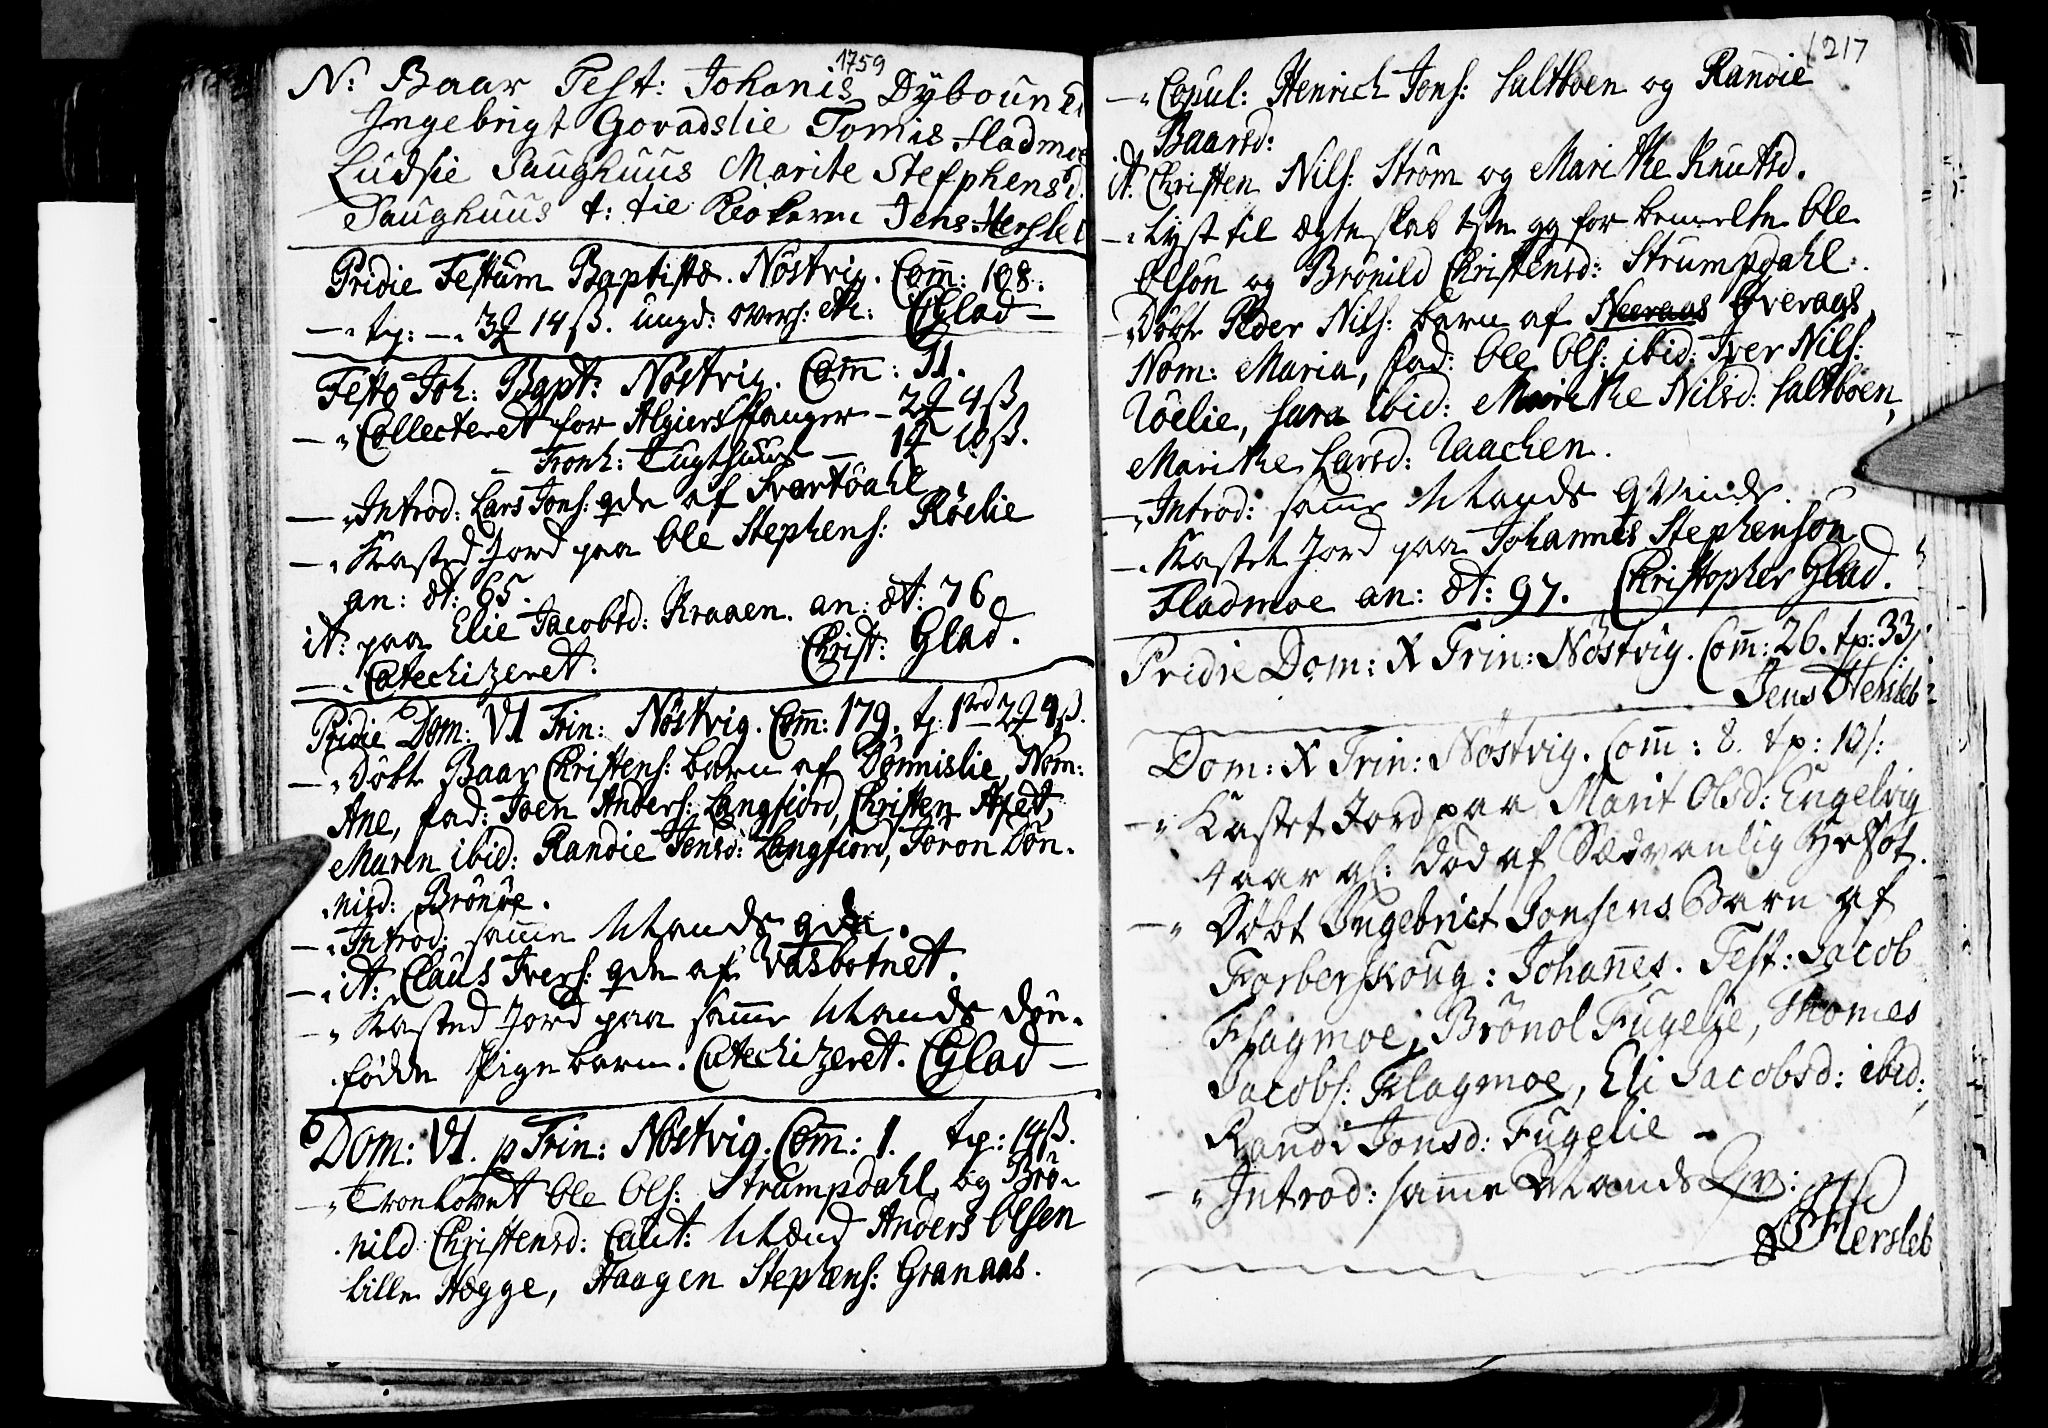 1759
N: Baar Test: Johanis Dÿboun
Ingebrigt Govadslie Tomis Fladmoe
Ludsie Saughuus Marite Stefphensd.
Saughuus t: til Kiokern Jens Hersleb
Pridie Festum Baptistæ. Nöstvig. Com̄: 108.
tp: 3 14 ß. ungd: overh: etc: CGlad
Festo Joh: Bapt: Nöstvig. Com̄: 11.
Collecteret for Algiers Fanger 2 4 ß
Tronh: Tugthuus 1 10 ß.
Introd: Lars Jons: qde af Svartdahl
Kasted Jord paa Ole Stephens: Röelie
an: æt: 65.
it: paa Elie Jacobsd: Kraaen. an: æt: 76.
Catechizeret. Christ: Glad.
Pridie Dom: VI Trin: Nöstvig. Com̄: 179. tp: 1 rd 2 4 ß.
Döbt Baar Christens: barn af Dönnislie, Nom:
Ane, fad: Joen Anders: Langfiord, Christen Apet,
Maren ibid: Randie Jensd: Langfiord, Joron Dön-
nisd: Brönöe.
Introd: sam̄e Mands qde.
it: Claus Ivers: qde af Vasbotnet.
Kasted Jord paa sam̄e Mands döu-
födde Pigebarn. Catechizeret. CGlad
Dom: VI. p Trin: Nöstvig. Com̄: 1. tp: 14 ß.
Tronlovet Ole Ols: Strumpdahl og Brö-
nild Christensd: Caut: Mænd Anders Olsen
Lille Hægge, Haagen Stephens: Granaas.
217
Copul: Henrich Jons: Saltboen og Randie
Baarsd:
it: Christen Nils: Ström og Marithe Knutsd.
Lyst til ægteskab 1ste gg for bemelte Ole
Olsön og Brönild Christensd: Strumpdahl.
Döbt Peder Nils: barn af Neeraas Overaas,
Nom: Maria, fad: Ole Ols: ibid: Iver Nils:
Röelie, Sara ibid: Marithe Nilsd: Saltboen,
Marithe Larsd: Raachen.
Introd: sam̄e Mands qvinde.
Kastet Jord paa Johannes Stephensön
Fladmoe an: æt: 97. Christopher Glad.
Pridie Dom: X Trin: Nöstvig. Com̄: 26. tp: 33
Jens Hersleb
Dom: X Trin: Nöstvig. Com̄: 8. tp: 10
Kastet Jord paa Marit Olsd: Engelvig
4 aar gl: död af Sædvanlig
Döbt Ingebrict Jonsens Barn af
Forberskoug: Johan̄es. Test: Jacob
Flagmoe, Brönol Fugelie, Thomes
Jacobs: Flagmoe, Eli Jacobsd: ibid:,
Randi Jonsd: Fugelie
Introd: sam̄e Mands Qv:
Hersleb